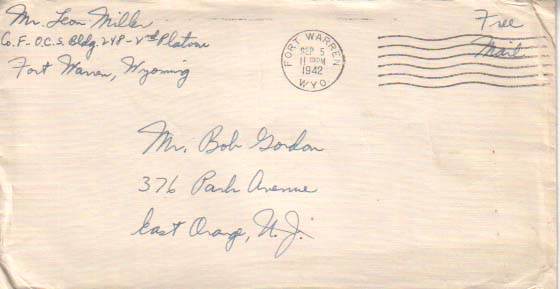 Mr. Leon Miller
Co. F. O.C.S. Bldg. 248 - 2nd Platoon
Fort Warren, Wyoming
FORT WARREN
SEP 5
11
1942
WYO.
Free
Mail
Mr. Bob Gordon
376 Park Avenue
East Orange, N.J.